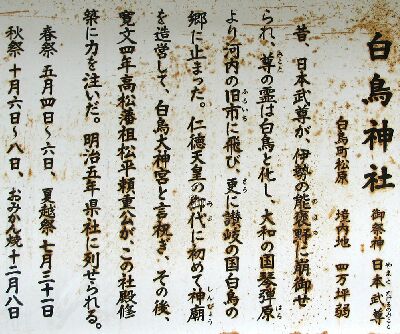 白鳥神社
御祭神 日本武尊
やまとたけるのみこと
白鳥町松原 境内地 四万坪弱
昔、日本武尊が、伊勢の能褒野に崩御せ
られ、尊の霊は白鳥と化し、大和の国琴弾原
より河内の旧市に飛び、更に讃岐の国白鳥の
郷に止まった。仁徳天皇の御代に初めて神廟
を造営して、白鳥大神宮と言祝ぎ、その後、
寛文四年高松藩祖松平頼重公が、この社殿修
築に力を注いだ。明治五年県社に列せられる。
春祭 五月四日〜六日、夏越祭 七月三十一日
秋祭 十月六日〜八日、おみかん焼 十二月八日